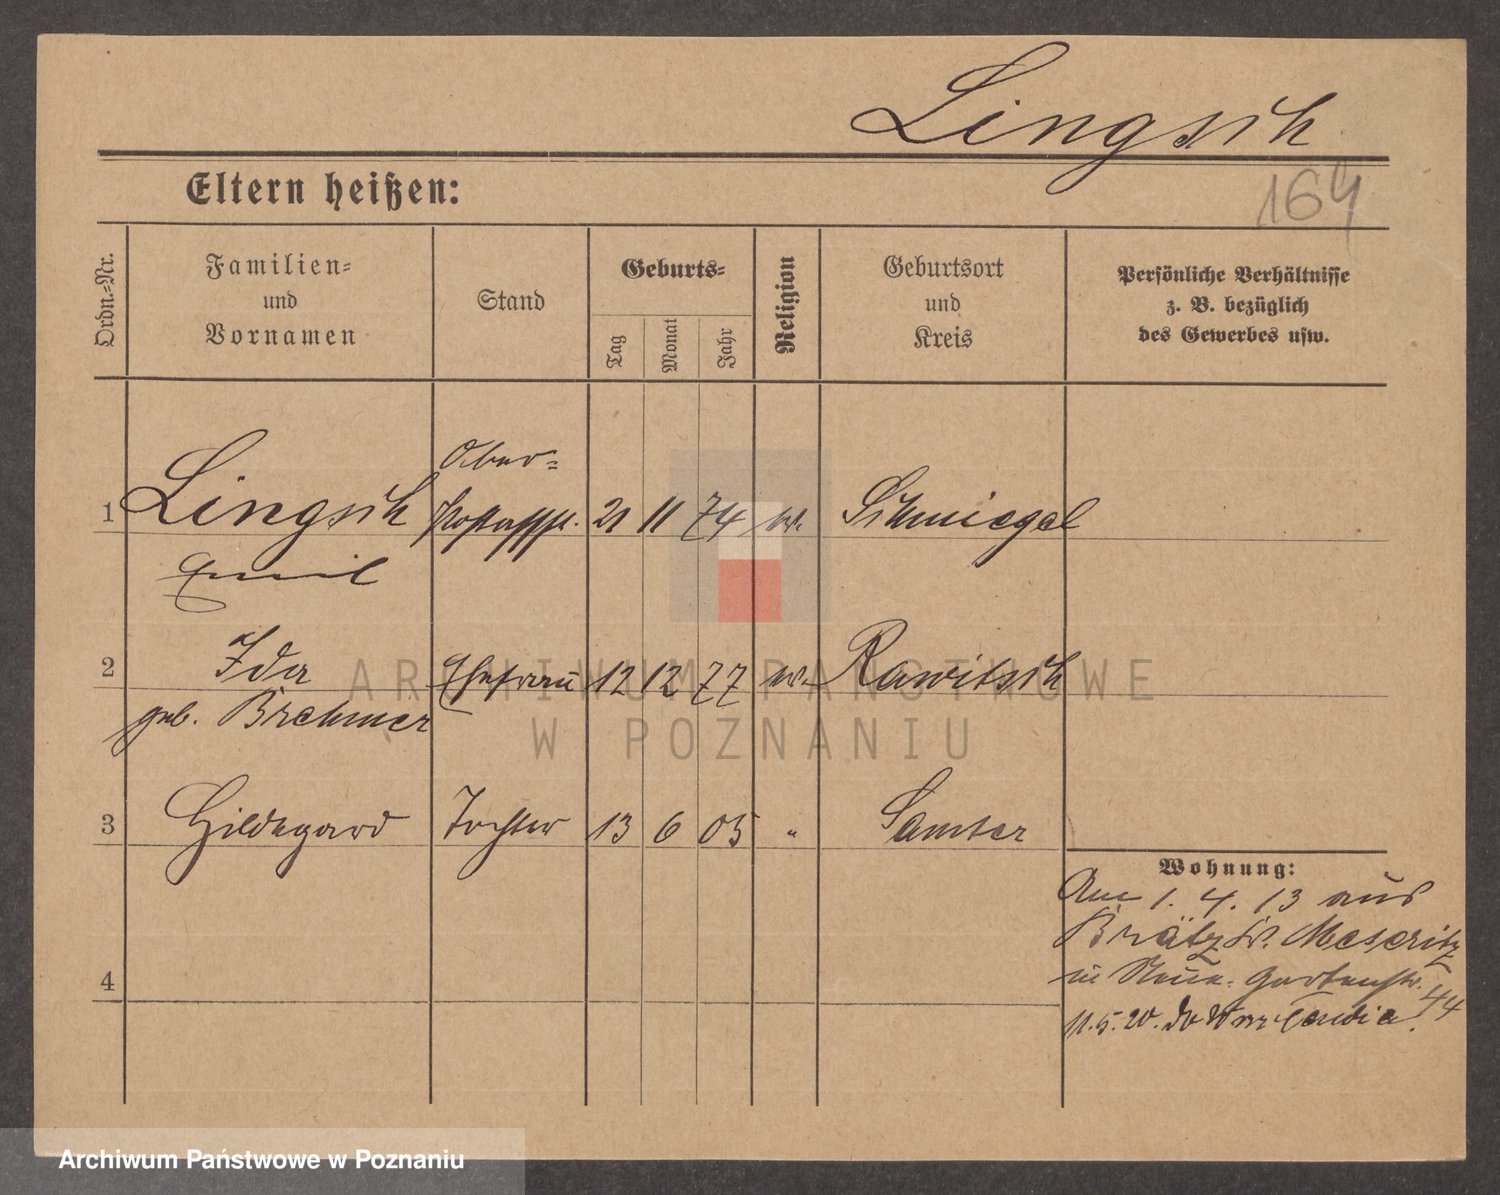 Lingsch
Eltern heißen:
164
Ordn.-Nr.
Familien-
und
Vornamen
Stand
Geburts-
Tag
Monat
Jahr
Religion
Geburtsort
und
Kreis
Persönliche Verhältnisse
z. B. bezüglich
des Gewerbes usw.
Ober-
1 Lingsch Postassist. 21 11 74 ev. Schmiegel
Emil
2 Ida Ehefrau 12 12 77 ev. Rawitsch
geb. Brehmer
3 Hildegard Tochter 13 6 05 " Samter
Wohnung:
Am 1. 4. 13 aus
Brätz Kr. Meseritz
in Gartenstr.
44
11.5.20.
4
ARCHIWUM PAŃSTWOWE
W POZNANIU
Archiwum Państwowe w Poznaniu